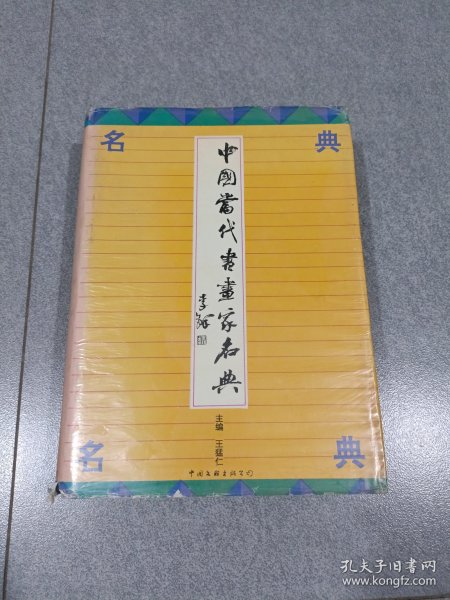 名 典
中國當代書畫家名典
李鐸
主编 王猛仁
名 典
中国文联出版公司
孔夫子旧书网
www.kongfz.com